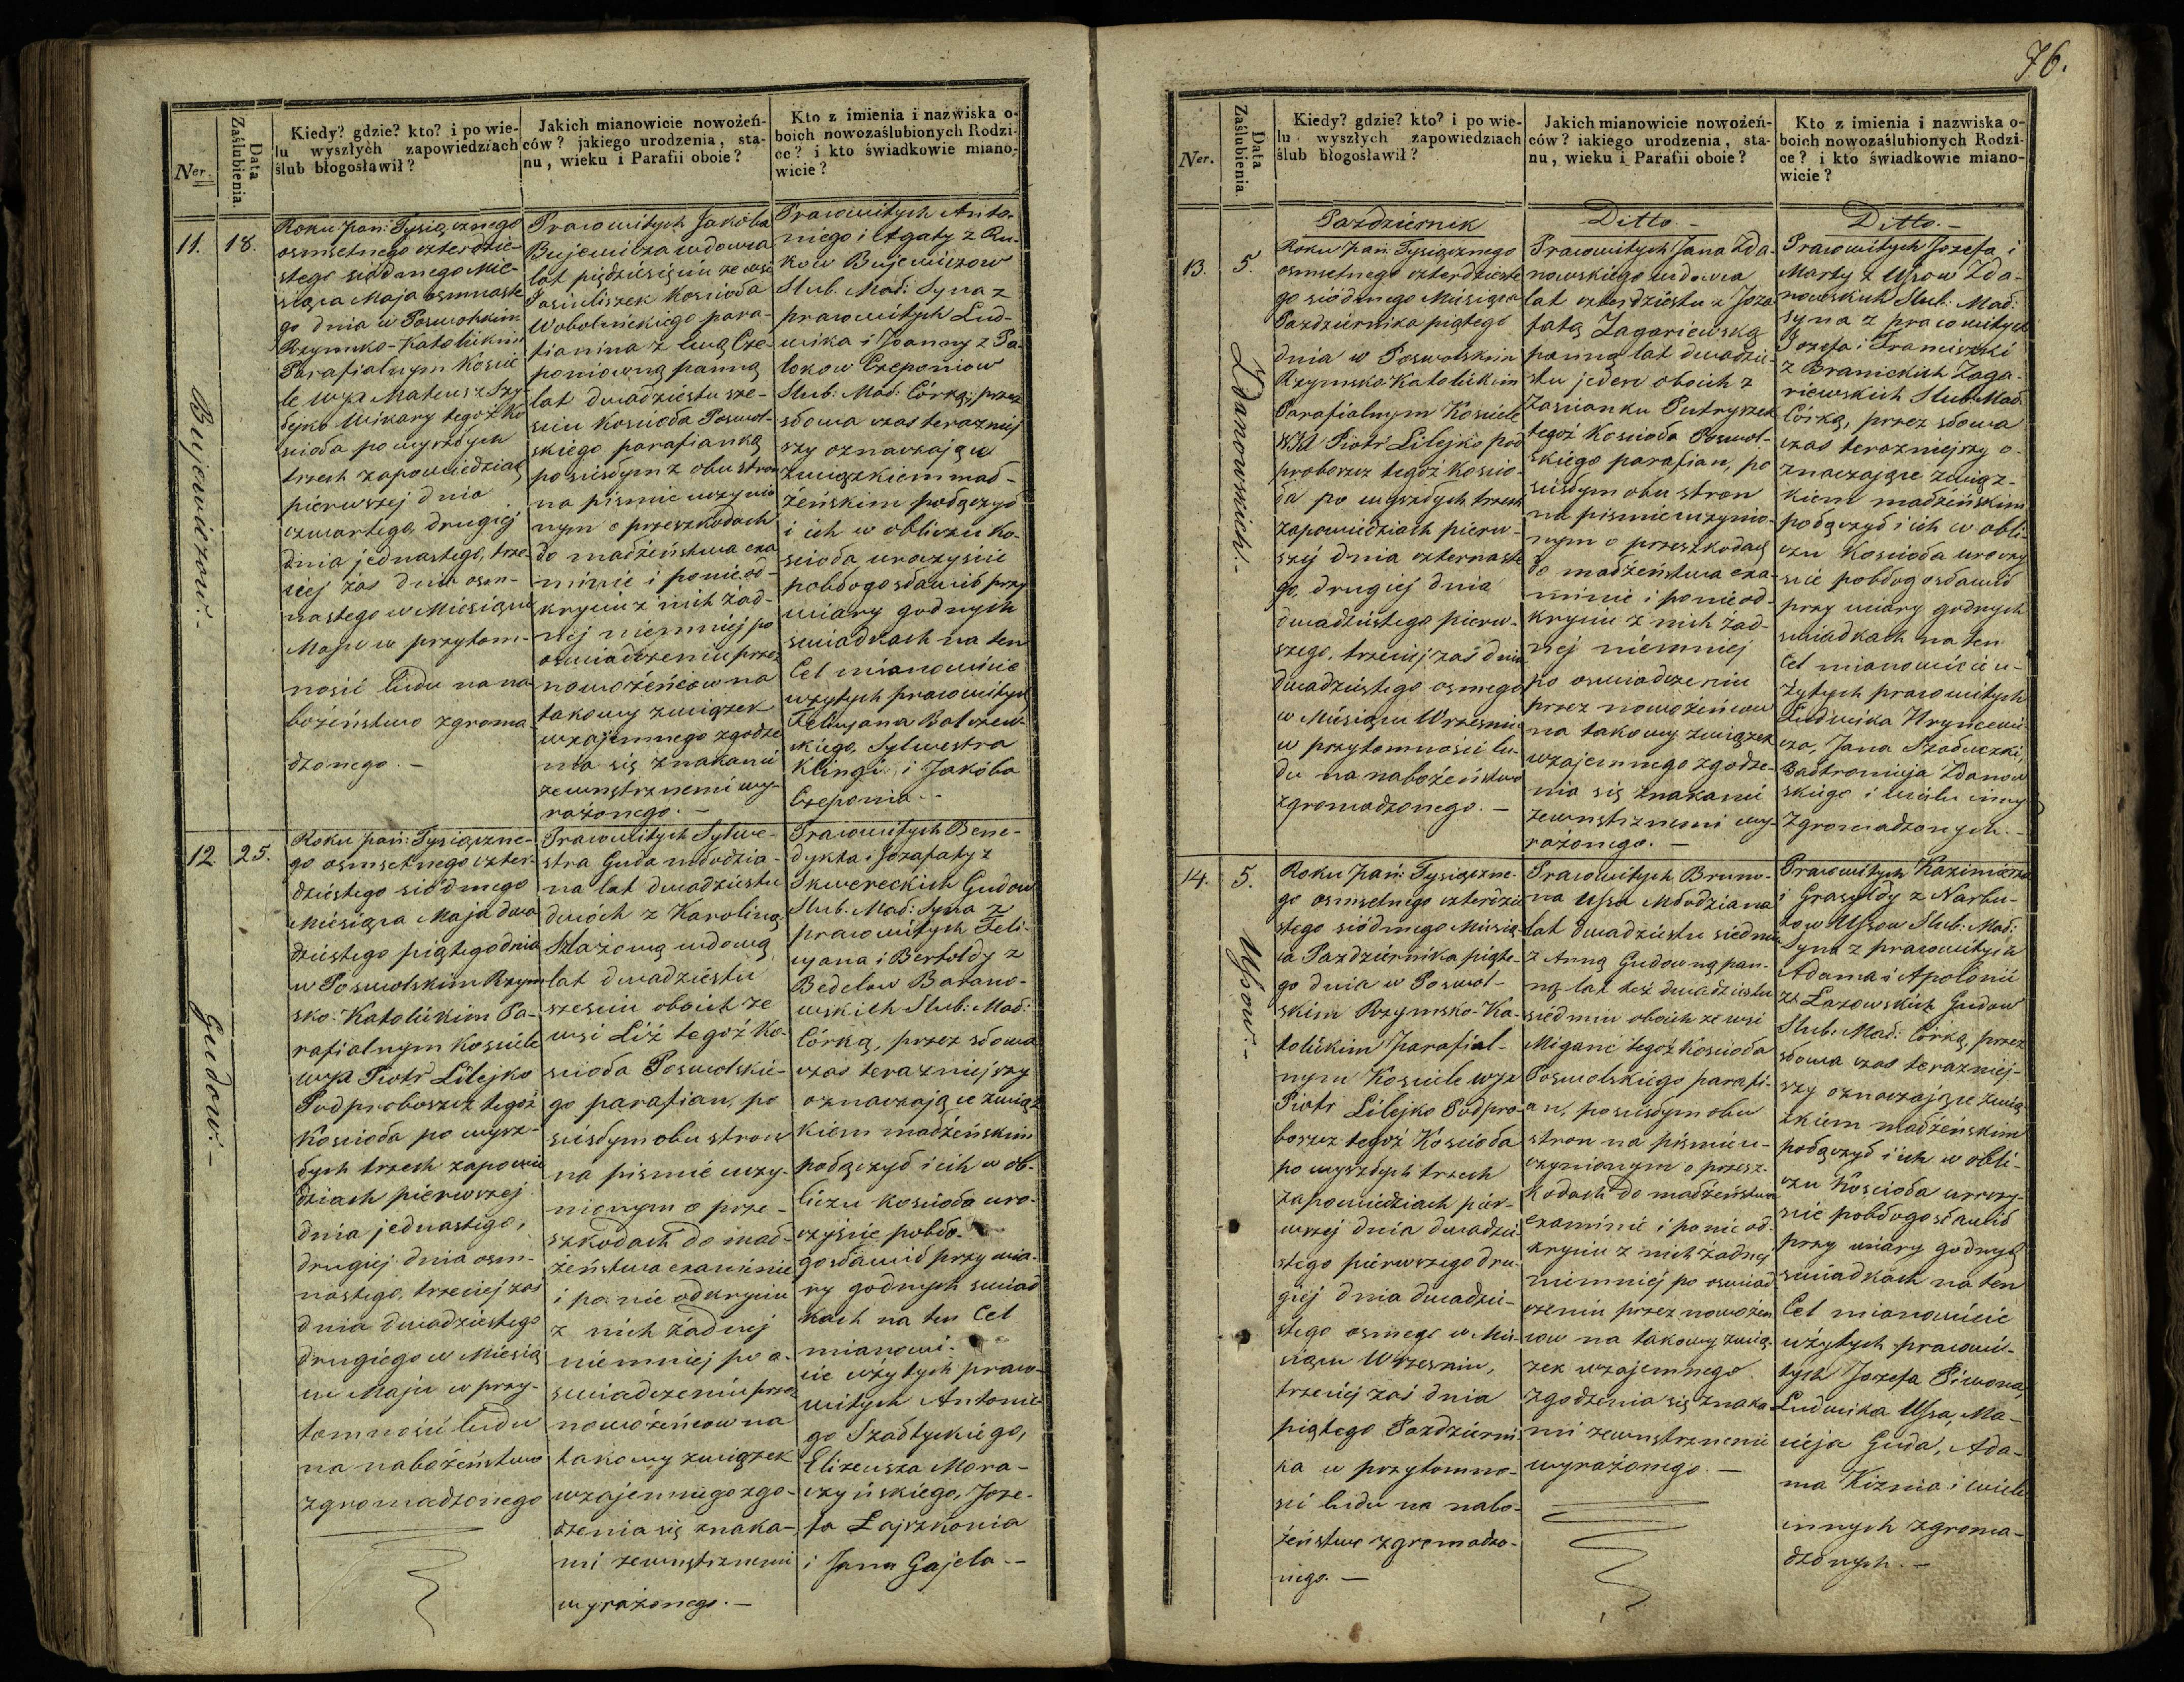 76.
Ner.
Data Zaślubienia.
Kiedy? gdzie? kto? i po wie-
lu wyszłych zapowiedziach
ślub błogosławił?
Jakich mianowicie nowożeń-
ców? jakiego urodzenia, sta-
nu, wieku i Parafii oboie?
Kto z imienia i nazwiska o-
boich nowozaślubionych Rodzi-
ce? i kto świadkowie miano-
wicie?
11.
18.
Bujewiczow.-
Roku Pań: Tysiącznego
osmsetnego czterdzie-
stego siódmego Mie-
siąca Maja osmnaste
go dnia w Poswolskim
Rzymsko-Katolickim
Parafialnym Koscie
le WJX Mateusz Szy-
dejko Wikary tegoż Ko
scioła po wyszłych
trzech zapowiedziach
pierwszej dnia
czwartego, drugiej
dnia jednastego, trze
ciej zas dnia osm-
nastego w Miesiącu
Maju w przytom-
nosić ludu na na
bożeństwo zgroma
dzonego.-
Prawowitych Jakóba
Bujewicza wdowca
lat pięćdziesięciu ze wsi
Kościoła
Wobolnickiego para-
fianina z Ewą Cze-
poniowną panną
lat dwadziestu sze-
sciu Kościoła Poswol-
skiego parafianką
po scisłym z obu stron
na pismie uczynio
nym o przeszkodach
do małżeństwa exa
minie i po nieod-
kryciu z nich żad-
nej niemniej po
oswiadczeniu przez
nowożeńcow na
takowy związek
wzajemnego zgodze
nia się znakami
zewnętrznemi wy-
rażonego.-
Prawowitych Anto-
niego i Agaty z Ru-
kow Bujewiczow
Slub. Mał: Syna z
prawowitych Lud-
wika i Joanny z Pa-
lokow Czeponiow
Slub: Mał: Córką, przez
słowa czas terazniej
szy oznaczające
związkiem mał-
żeńskim połączył
i ich w obliczu Ko-
scioła uroczyscie
pobłogosławił przy
wiary godnych
swiadkach na ten
Cel mianowicie
użytych prawowitych
Felicyana Balczew-
skiego, Sylwestra
Klingi i Jakóba
Czeponia.-
12
25.
Gudow.-
Roku pań: Tysiączne-
go osmsetnego czter-
dziestego siódmego
Miesiąca Maja dwa
dziestego piątego dnia
w Poswolskim Rzym
sko-Katolickim Pa-
rafialnym Kosciele
WJX Piotr Lilejko
Podproboszcz tegoż
Kościoła po wysz-
łych trzech zapowie
dziach pierwszej
dnia jednastego,
drugiej dnia osm-
nastego, trzeciej zas
dnia dwadziestego
drugiego w Miesią
cu Maju w przy-
tomnosci ludu
na nabożeństwo
zgromadzonego
Prawowitych Sylwe-
stra Guda młodzia-
na lat dwadziestu
dwóch z Karoliną
Szlażową wdową
lat dwadziestu
szesciu oboich ze
wsi Liż tegoż Ko-
scioła Poswolskie-
go parafian, po
scisłym obu stron
na pismie uczy-
nionym o prze-
szkodach do mał-
żeństwa examinie
i po nie odkryciu
z nich żadnej
niemniej po o-
swiadczeniu przez
nowożeńcow na
takowy związek
wzajemnego zgo-
dzenia się znaka-
mi zewnętrznemi
wyrażonego.-
Prawowitych Bene-
dykta i Jozafaty z
Skwereckich Gudow
Slub. Mał: Syna z
prawowitych Feli-
cyana i Bertoldy z
Bedelow Barano-
wskich Slub: Mał:
Córką, przez słowa
czas terazniejszy
oznaczające związ
kiem małżeńskim
połączył i ich w ob-
liczu Kościoła uro-
czyscie pobło-
gosławił przy wia-
ry godnych swiad
kach na ten Cel
mianowi-
cie użytych prawo-
witych Antonie
go Szałtyckiego,
Elizeusza Mora-
czyńskiego, Joze-
fa Łajszkonia
i Jana Gajela.-
Ner.
Data Zaślubienia.
Kiedy? gdzie? kto? i po wie-
lu wyszłych zapowiedziach
ślub błogosławił?
Jakich mianowicie nowożeń-
ców? iakiego urodzenia, sta-
nu, wieku i Parafii oboie?
Kto z imienia i nazwiska o-
boich nowozaślubionych Rodzi-
ce? i kto świadkowie miano-
wicie?
13.
5.
Zdanowskich.-
Październik
Roku Pań: Tysiącznego
osmsetnego czterdzieste
go siódmego Miesiąca
Października piątego
dnia w Poswolskim
Rzymsko-Katolickim
Parafialnym Kosciele
WJX Piotr Lilejko pod
proboszcz tegoż Koscio-
ła po wyszłych trzech
zapowiedziach pierw-
szej dnia czternaste
go, drugiej dnia
dwadziestego pierw-
szego, trzeciej zaś dnia
dwadziestego osmego
w Miesiącu Wrzesniu
w przytomności lu-
du na nabożeństwo
zgromadzonego.-
Ditto-
Prawowitych Jana Zda-
nowskiego wdowca
lat czterdziestu z Joza
fatą Zagariewską
panną lat dwadzie-
stu jeden oboich z
Zascianku Putryszek
tegoż Kościoła Poswol-
skiego parafian, po
scisłym obu stron
na pismie uczynio-
nym o przeszkodach
do małżeństwa exa-
minie i po nieod-
kryciu z nich żad-
nej niemniej
po oswiadczeniu
przez nowożeńcow
na takowy związek
wzajemnego zgodze-
nia się znakami
zewnętrznemi wy-
rażonego.-
Ditto.-
Prawowitych Jozefa i
Marty z Ussow Zda-
nowskich Slub: Mał:
syna z prawowitych
Jozefa i Franciszki
z Branickich Zaga-
riewskich Slub: Mał:
Córką, przez słowa
czas terazniejszy o-
znaczające związ-
kiem małżeńskim
połączył i ich w obli-
czu Kościoła uroczy
scie pobłogosławił
przy wiary godnych
swiadkach na ten
Cel mianowicie u-
żytych prawowitych
Ludwika Hryncewi-
cza, Jana Szaduczki,
Bałtromieja Zdanow
skiego i wielu innych
Zgromadzonych.-
14.
5.
Ussow.-
Roku Pań: Tysiączne-
go osmsetnego czterdzie
stego siódmego Miesią-
ca Października piąte-
go dnia w Poswol-
skim Rzymsko-Ka-
tolickim Parafial-
nym Kosciele WJX
Piotr Lilejko Podpro-
boszcz tegoż Kościoła
po wyszłych trzech
zapowiedziach pier-
wszej dnia dwadzie
stego pierwszego dru-
giej dnia dwadzie-
stego osmego w Mie-
siącu Wrzesniu,
trzeciej zaś dnia
piątego Październi
ka w przytomno-
sci ludu na nabo-
żeństwo zgromadzo-
nego.-
Prawowitych Bruno-
na Ussa Młodziana
lat dwadziestu siedmiu
z Anną Gudowną pan-
ną lat też dwadziestu
siedmiu oboich ze wsi
Miganc tegoż Kościoła
Poswolskiego parafi-
an, po scisłym obu
stron na pismie u-
czynionym o przesz-
kodach do małżeństwa
examinie i po nie od-
kryciu z nich żadnej
niemniej po oswiad
czeniu przez nowożeń
cow na takowy zwią-
zek wzajemnego
zgodzenia się znaka
mi zewnętrznemi
wyrażonego.-
Prawowitych Kazimierza
i Grasyldy z Narbu-
tow Ussow Slub: Mał:
Syna z prawowitych
Adama i Apolonii
z Łazowskich Gudow
Slub: Mał: Córką, przez
słowa czas terazniej-
szy oznaczające zwią
zkiem małżeńskim
połączył i ich w obli-
czu Kościoła uroczy-
scie pobłogosławił
przy wiary godnych
swiadkach na ten
Cel mianowicie
użytych prawowi-
tych Jozefa Piwona,
Ludwika Ussa, Ma-
cieja Guda, Ada-
ma Kiznia i wielu
innych zgroma-
dzonych.-